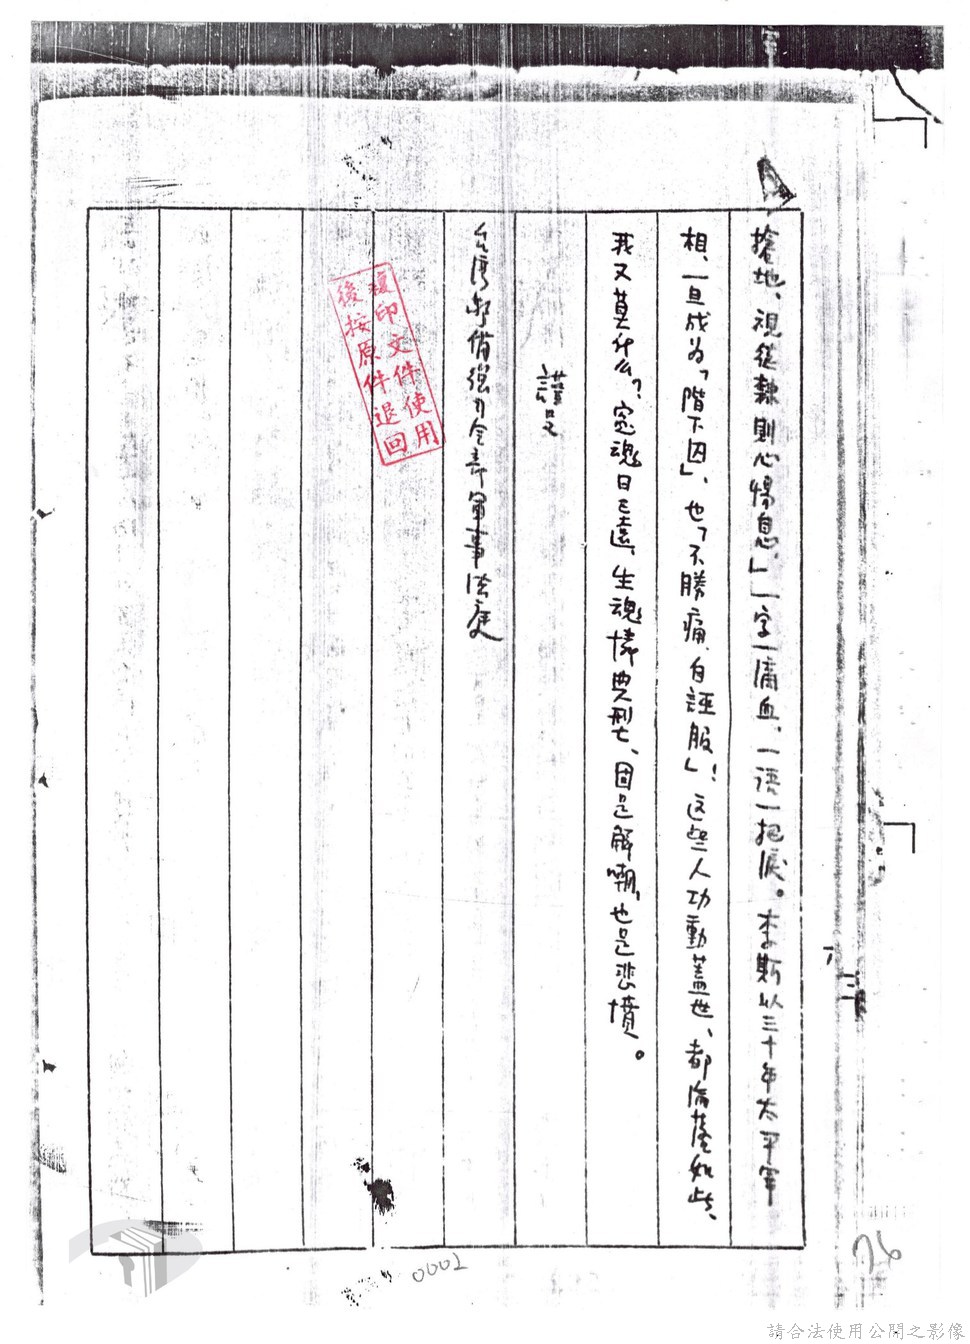 搶地、視徒隸則心惕息、」一字一滴血、一語一把淚。李斯以三十年太平宰
相、一旦成为「階下囚」、也「不勝痛、自誣服」！这些人功勳蓋世、都淪落如此、
我又莫什么？冤魂日已遠、生魂憐典型、固是解嘲、也是悲憤。
謹呈
台湾警俻總司令部軍事法庭
複印文件使用
後按原件退回
0002
76
請合法使用公開之影像